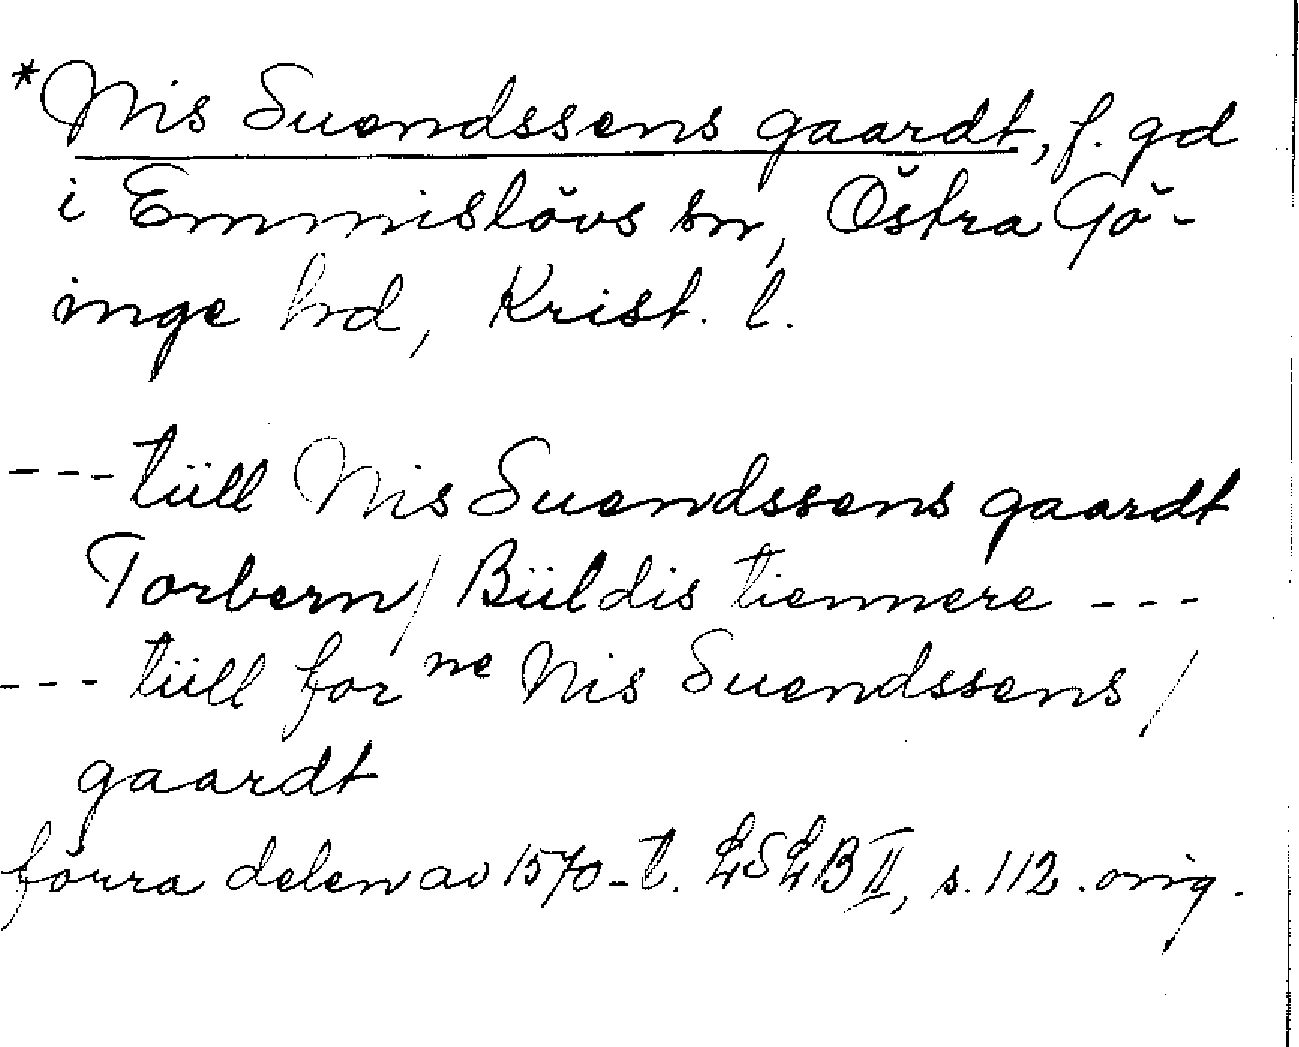 *Nis Suendssens gaardt, f. gd
i Emmislövs sn, Östra Gö-
inge hd, Krist. l.
---tiill Nis Suendssens gaardt
Torbern/ Biildis tiennere ---
---tiill for ne Nis Suendssens /
gaardt
förra delen av 1570-t. LSLB II, s. 112. orig.